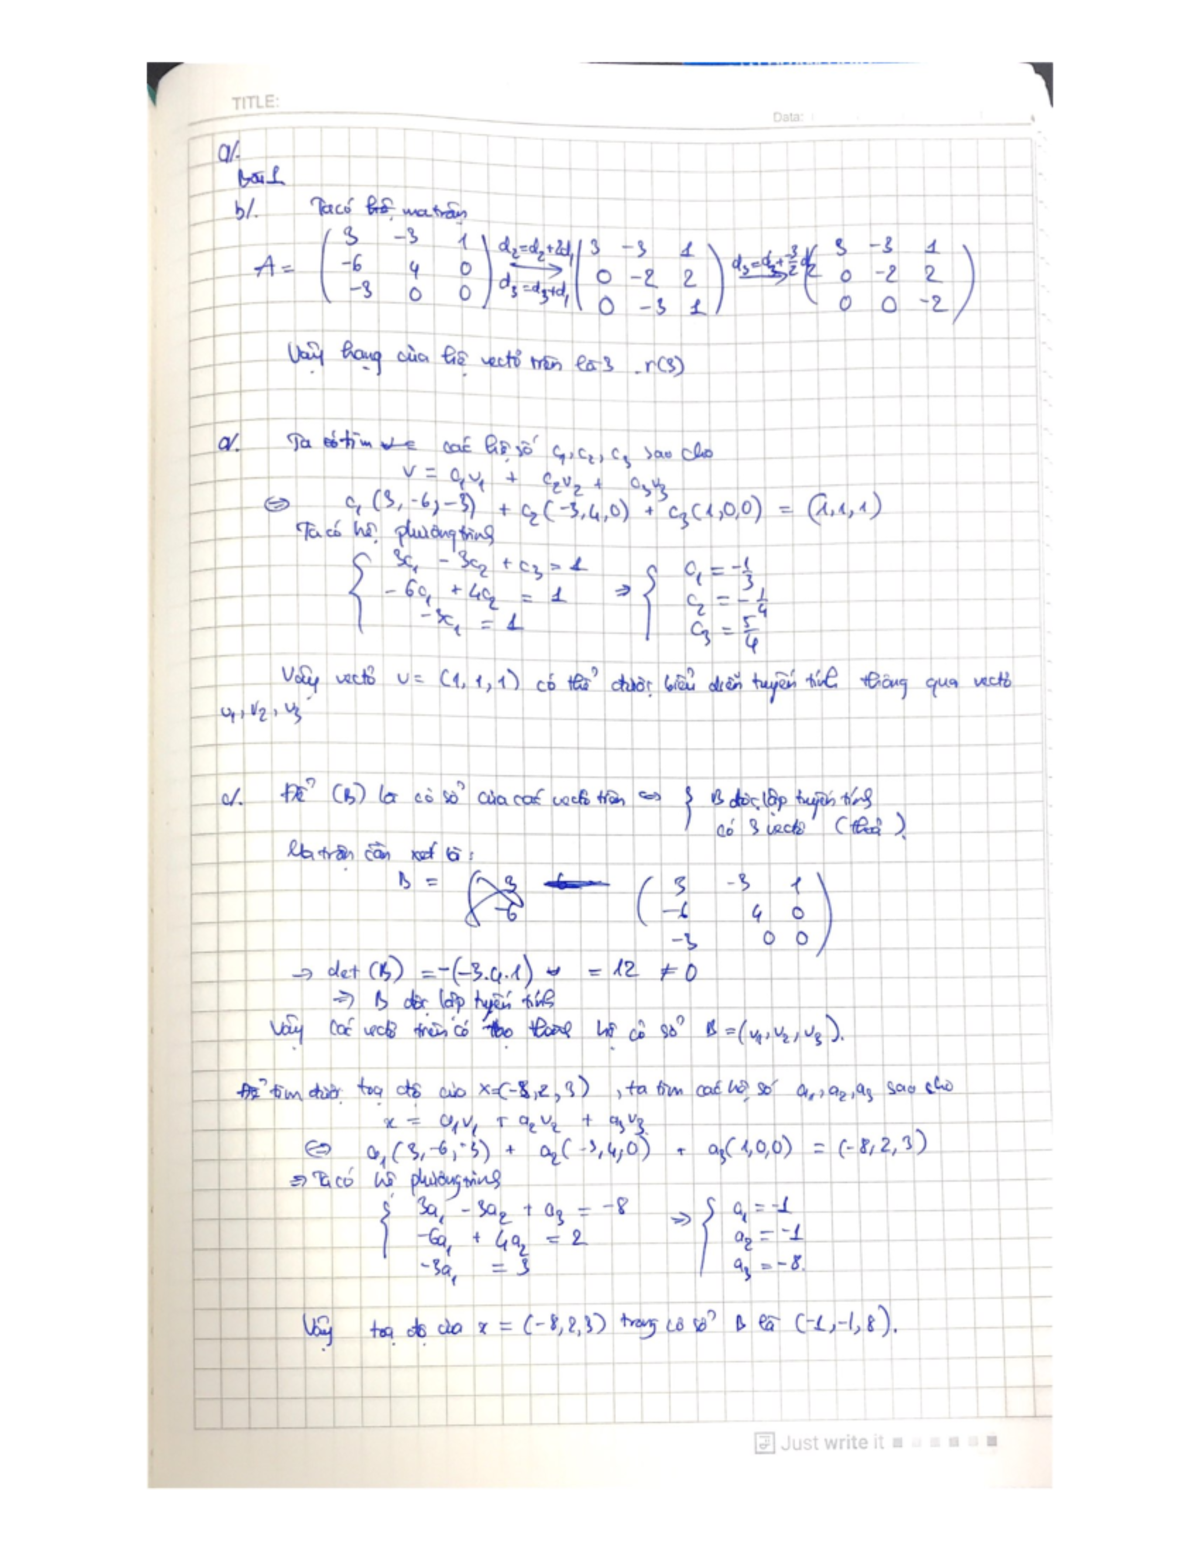 TITLE:
Data:
a/.
Bài 1
b/. Ta có hệ ma trận
A = ( 3 -3 1 ) d2=d2+2d1 ( 3 -3 1 ) d3=d3+-3/2d2 ( 3 -3 1 )
( -6 4 0 ) → ( 0 -2 2 ) → ( 0 -2 2 )
( -3 0 0 ) d3=d3+d1 ( 0 -3 1 ) ( 0 0 -2 )
Vậy hạng của hệ vectơ trên là 3 . r(3)
a/. Ta có tìm các hệ số c1, c2, c3 sao cho
v = c1v1 + c2v2 + c3v3
⇔ c1(3,-6,-3) + c2(-3,4,0) + c3(1,0,0) = (1,1,1)
Ta có hệ phương trình
{ 3c1 - 3c2 + c3 = 1 { c1 = -1/3
-6c1 + 4c2 = 1 ⇒ c2 = -1/4
-3c1 = 1 c3 = 5/4
Vậy vectơ v = (1,1,1) có thể được biểu diễn tuyến tính thông qua vectơ
v1, v2, v3
c/. Để (B) là cơ sở của các vectơ trên ⇔ { B độc lập tuyến tính
có 3 vectơ (thoả).
Ma trận cần xét là:
B = ( 3 ( 3 -3 1 )
-6 ( -6 4 0 )
( -3 0 0 )
→ det (B) = -(-3.4.1) = 12 ≠ 0
⇒ B độc lập tuyến tính
Vậy các vectơ trên có tạo thành hệ cơ sở B = (v1, v2, v3).
Để tìm được toạ độ của x=(-8,2,3) , ta tìm các hệ số a1, a2, a3 sao cho
x = a1v1 + a2v2 + a3v3
⇔ a1(3,-6,-3) + a2(-3,4,0) + a3(1,0,0) = (-8,2,3)
⇒ Ta có hệ phương trình
{ 3a1 - 3a2 + a3 = -8 { a1 = -1
-6a1 + 4a2 = 2 ⇒ a2 = -1
-3a1 = 3 a3 = -8.
Vậy toạ độ của x = (-8,2,3) trong cơ sở B là (-1,-1,8).
Just write it